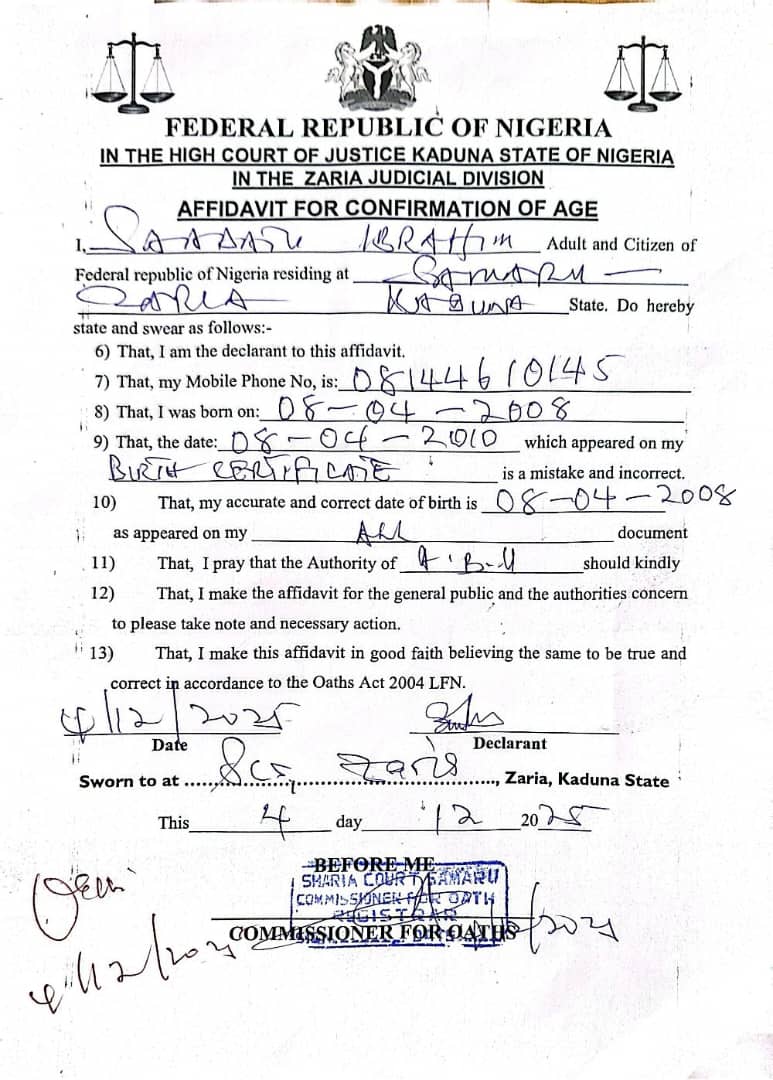 FEDERAL REPUBLIC OF NIGERIA
IN THE HIGH COURT OF JUSTICE KADUNA STATE OF NIGERIA
IN THE ZARIA JUDICIAL DIVISION
AFFIDAVIT FOR CONFIRMATION OF AGE
I, SAADATU IBRAHIM Adult and Citizen of
Federal republic of Nigeria residing at SAMARU
ZARIA KADUNA State. Do hereby
state and swear as follows:-
6) That, I am the declarant to this affidavit.
7) That, my Mobile Phone No, is: 08144610145
8) That, I was born on: 08-04-2008
9) That, the date: 08-04-2010 which appeared on my
BIRTH CERTIFICATE is a mistake and incorrect.
10) That, my accurate and correct date of birth is 08-04-2008
as appeared on my ALL document
11) That, I pray that the Authority of A.B.U should kindly
12) That, I make the affidavit for the general public and the authorities concern
to please take note and necessary action.
13) That, I make this affidavit in good faith believing the same to be true and
correct in accordance to the Oaths Act 2004 LFN.
4/12/2025
Date Declarant
Sworn to at ..... Zaria ....., Zaria, Kaduna State
This 4 day 12 2025
BEFORE ME
SHARIA COURT SAMARU
COMMISSIONER FOR OATH
REGISTRAR
COMMISSIONER FOR OATHS
4/12/2025